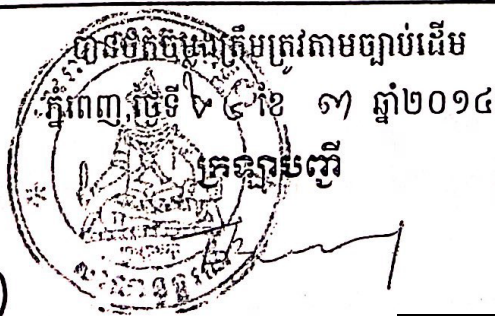 បានថតចម្លងត្រឹមត្រូវតាមច្បាប់ដើម
ភ្នំពេញ,ថ្ងៃទី ២៤ ខែ ៣ ឆ្នាំ២០១៤
ក្រឡាបញ្ជី